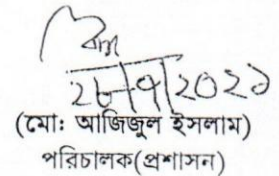 ২৮/৭/২০২১
(মোঃ আজিজুল ইসলাম)
পরিচালক(প্রশাসন)